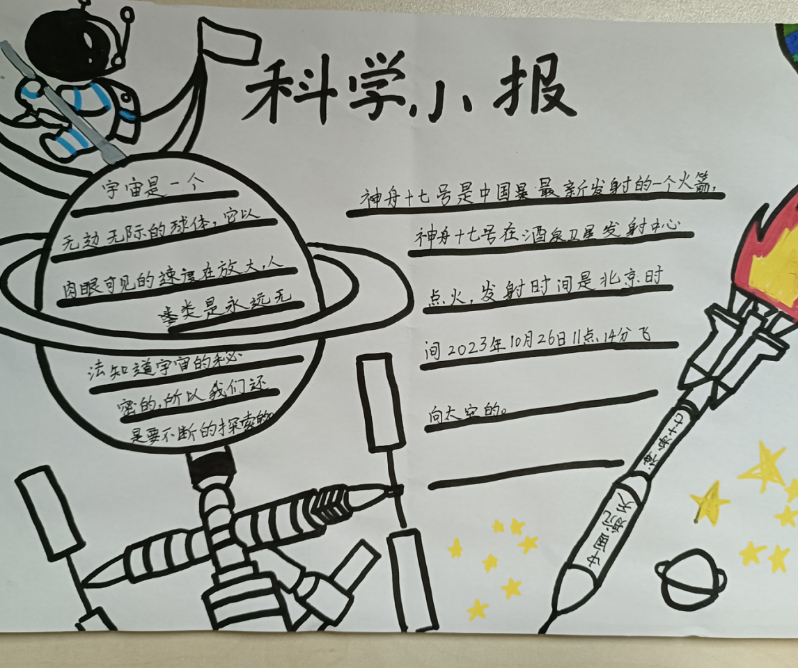 科学小报
宇宙是一个
无边无际的球体，它以
肉眼可见的速度在放大，人
类是永远无
法知道宇宙的秘
密的，所以我们还
是要不断的探索的
神舟十七号是中国最新发射的一个火箭，
神舟十七号在酒泉卫星发射中心
点火，发射时间是北京时
间2023年10月26日11点14分飞
向太空的。
神舟十七
中国航天